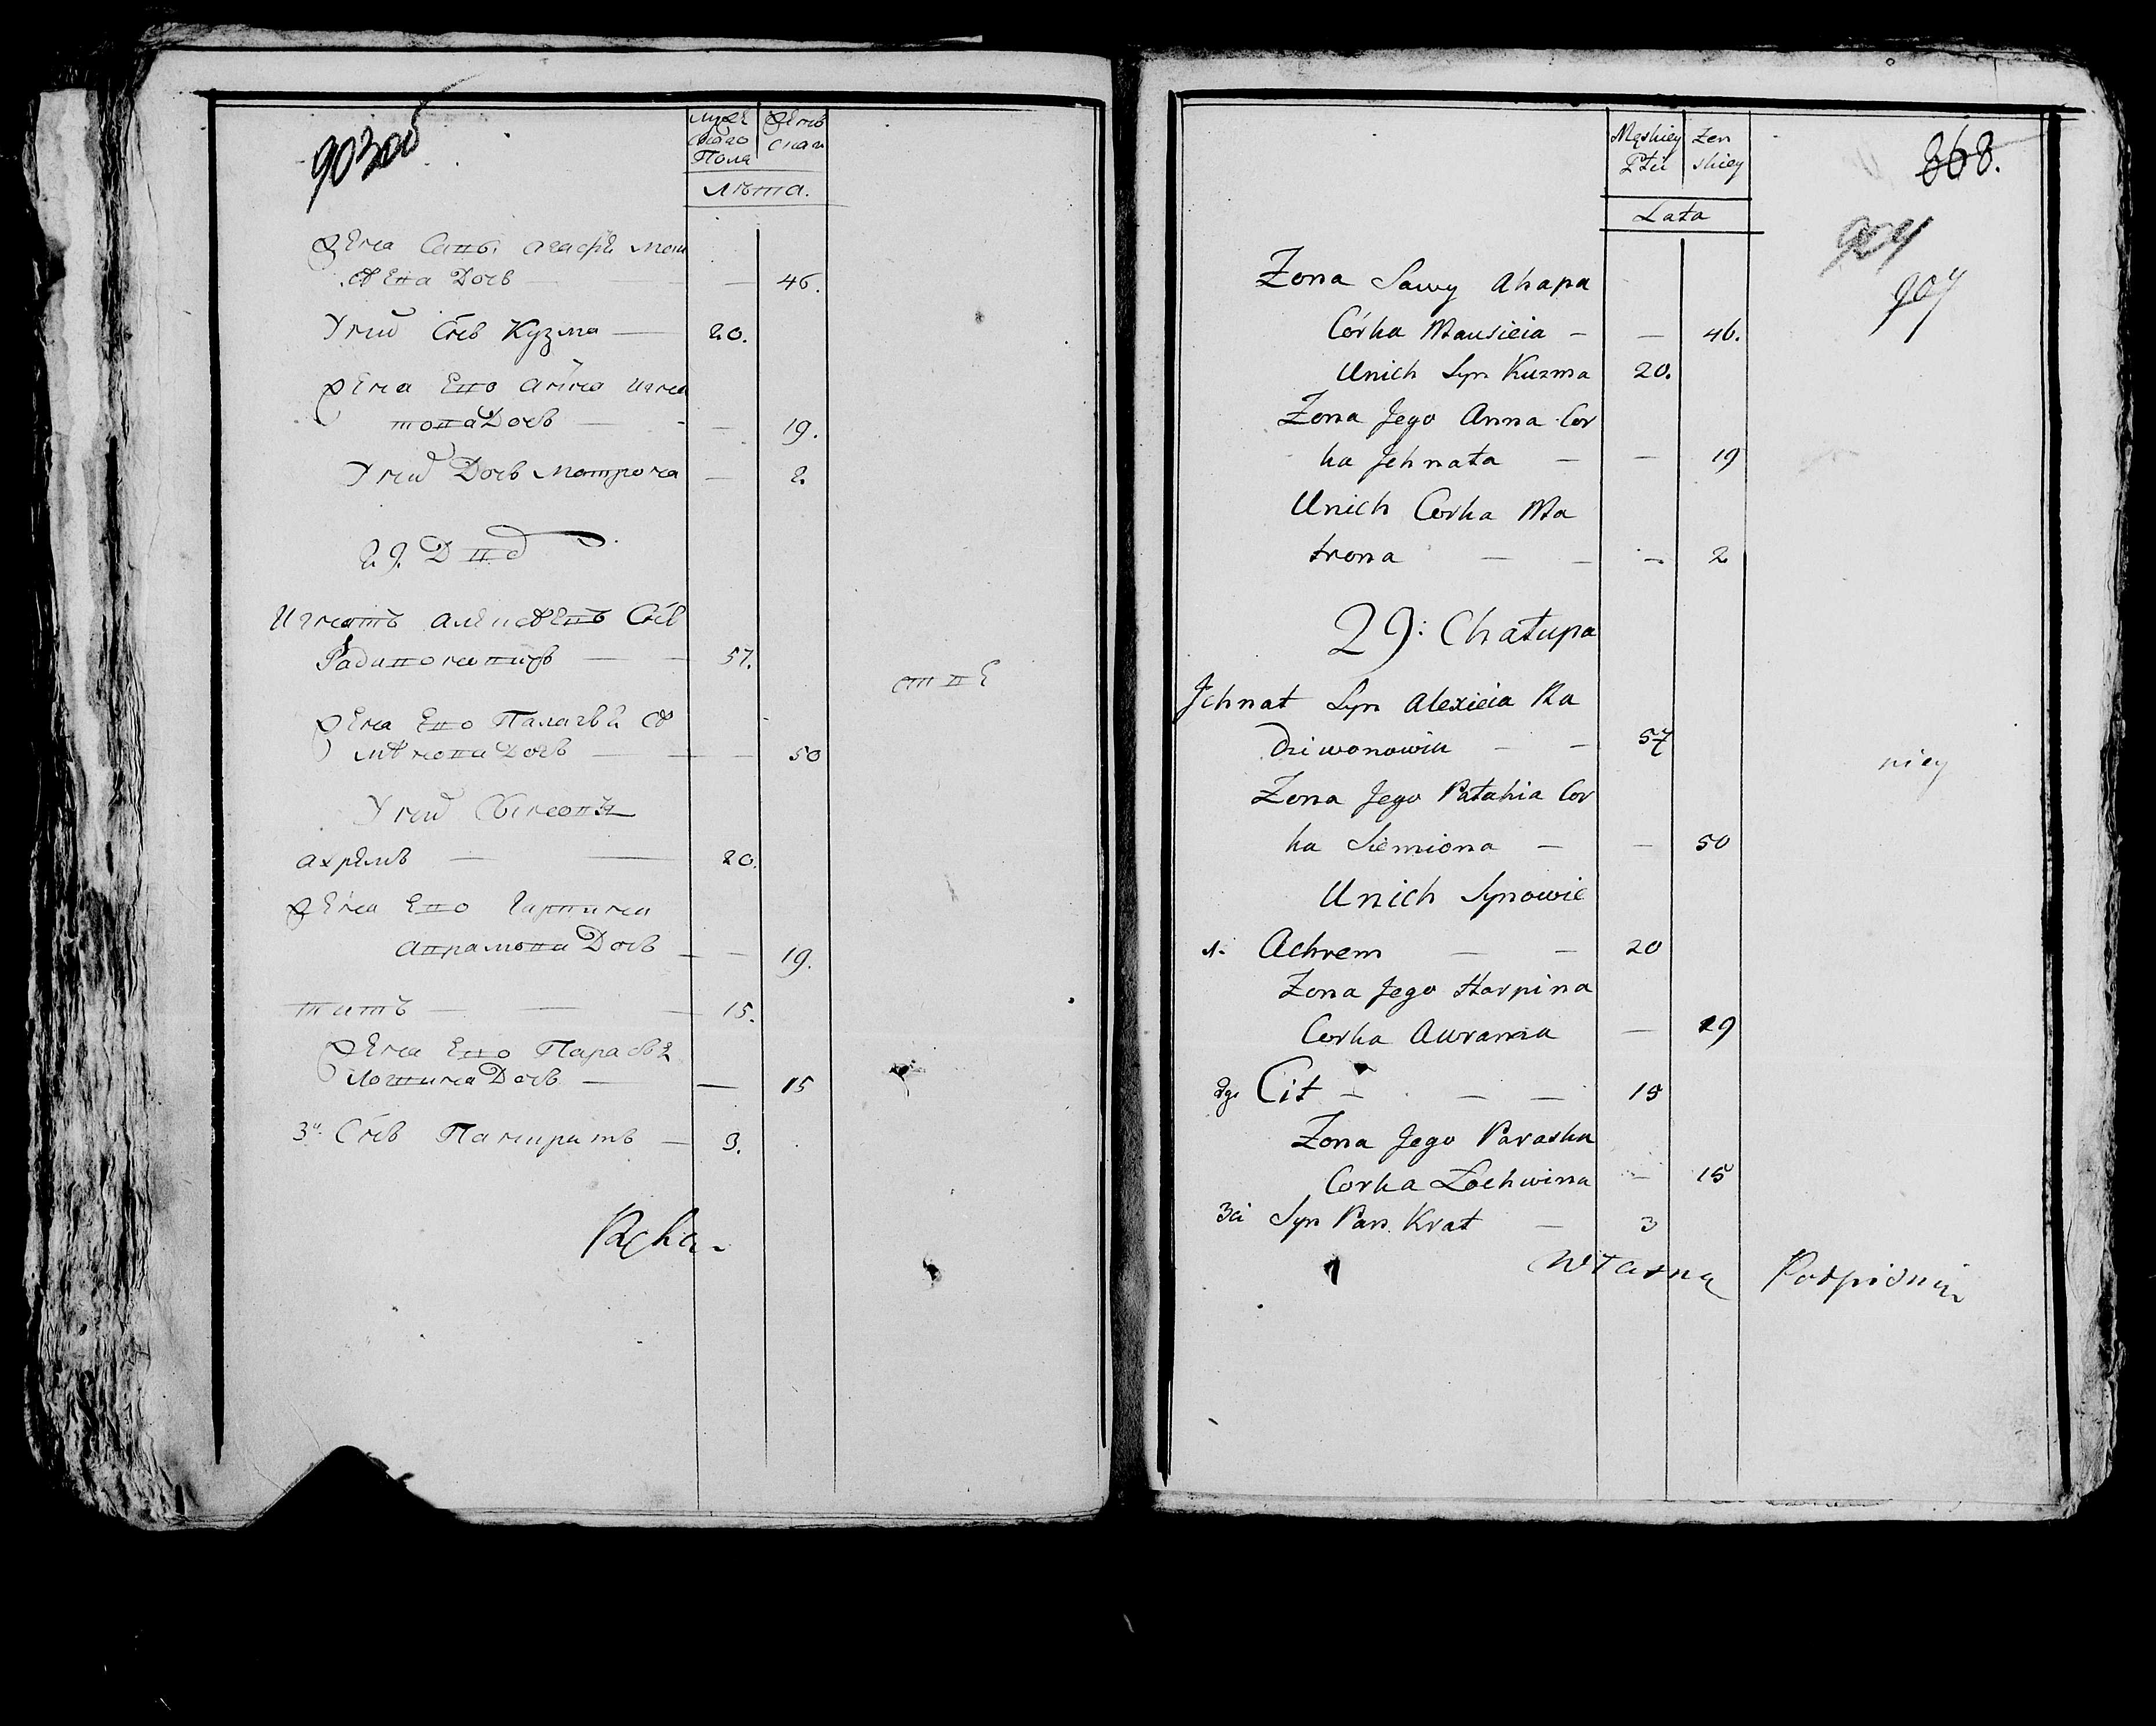 903об
Муже
скаго
Пола
Жень
скаго
Лета.
Жена Савы Агафiя Мои
сеева Дочь — 46.
У них Сынъ Кузма — 20.
Жена Его Анна Игна
това Дочь — 19.
У них Дочь Матрона — 2.
29. Двор
Игнатъ Алексеевъ Сынъ
Радивоновичъ — 57.
Жена Его Палагея Се
менова Дочь — 50
У них Сыновья
Ахремъ — 20.
Жена Его Гарпина
Аврамова Дочь — 19.
Титъ — 15.
Жена Его Парасья
Логвина Дочь — 15
3й Сынъ Панкратъ — 3.
Ręką
868.
904
904
Męskiey
Płci
Zen
skiey
Lata
Zona Sawy Ahapa
Córka Mausieia — — 46.
Unich Syn Kuzma 20.
Zona Jego Anna Cor
ka Jehnata — — 19
Unich Corka Ma
trona — — — 2
29: Chałupa
Jehnat Syn Alexieia Ra
dziwonowicz — — 57
niey
Zona Jego Pałahia Cor
ka Siemiona — — 50
Unich Synowie
1. Achrem — — 20
Zona Jego Harpina
Corka Awrama — 19
2gi Cit — — — 15
Zona Jego Paraska
Corka Łochwina — 15
3ci Syn Pan Krat — 3
Własną Podpisuię